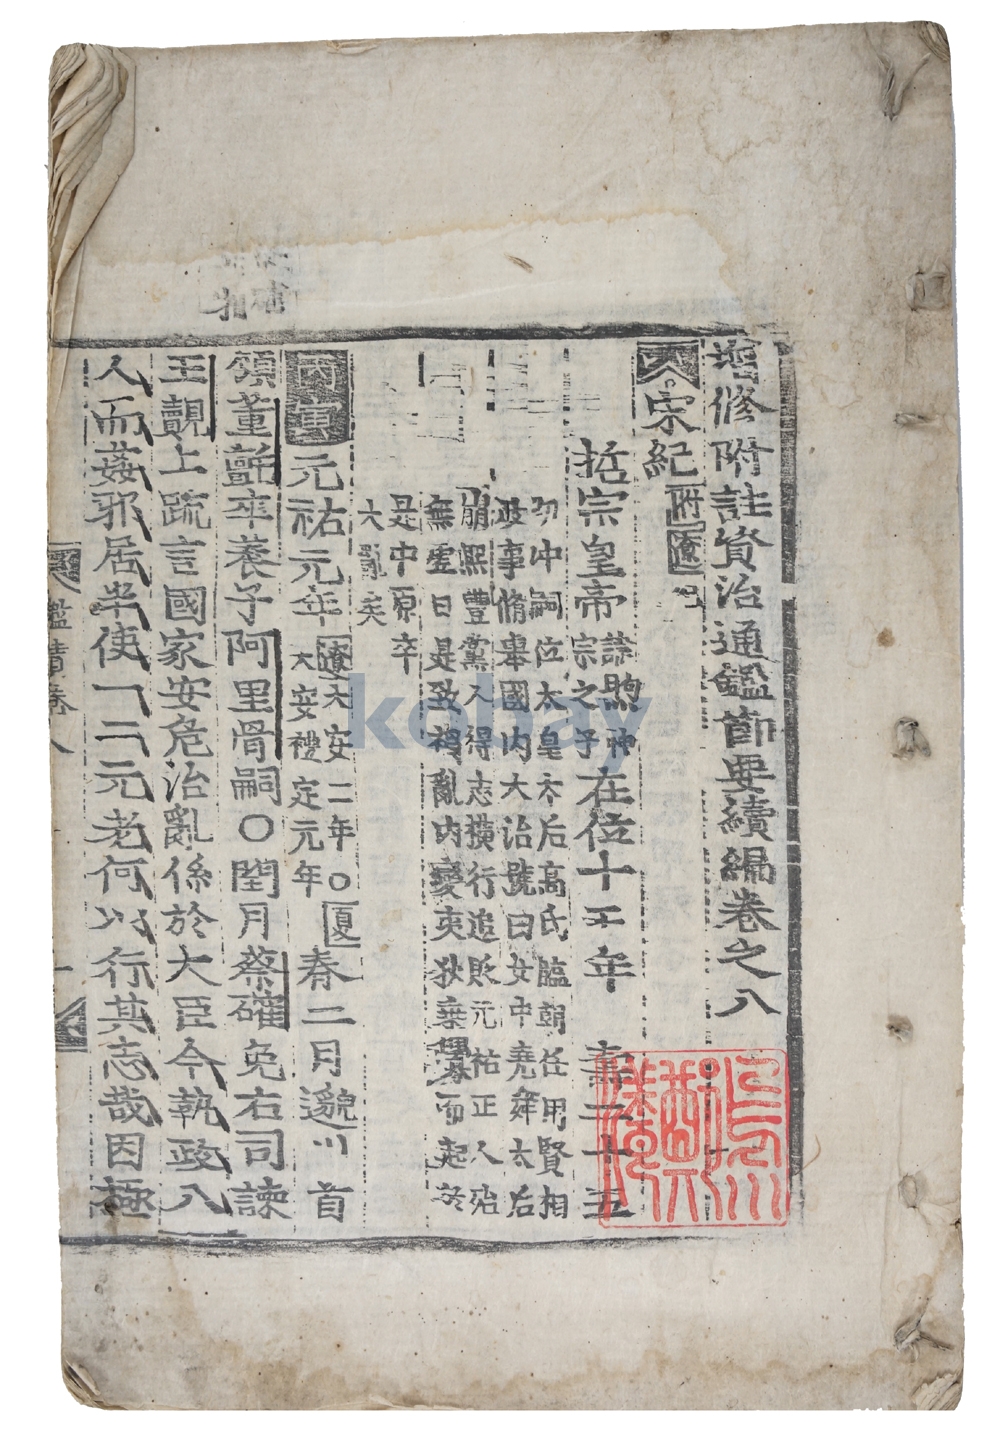 增修附註資治通鑑節要續編卷之八
宋紀 附遼
哲宗皇帝 諱煦神宗之子 在位十五年 壽二十五
幼冲嗣位太皇太后高氏臨朝任用賢相
政事脩舉國內大治號曰女中堯舜太后
崩熙豐黨人得志橫行追貶元祐正人殆
無虛日是致禍亂內變夷狄乘釁而起於
是中原卒
大亂矣
丙寅 元祐元年 遼大安二年○夏大安禮定元年 春二月邈川首
領董氈卒養子阿里骨嗣○閏月蔡確免右司諫
王覿上疏言國家安危治亂係於大臣今執政八
人而姦邪居半使一二元老何以行其志哉因極
鑑續卷八
kobay